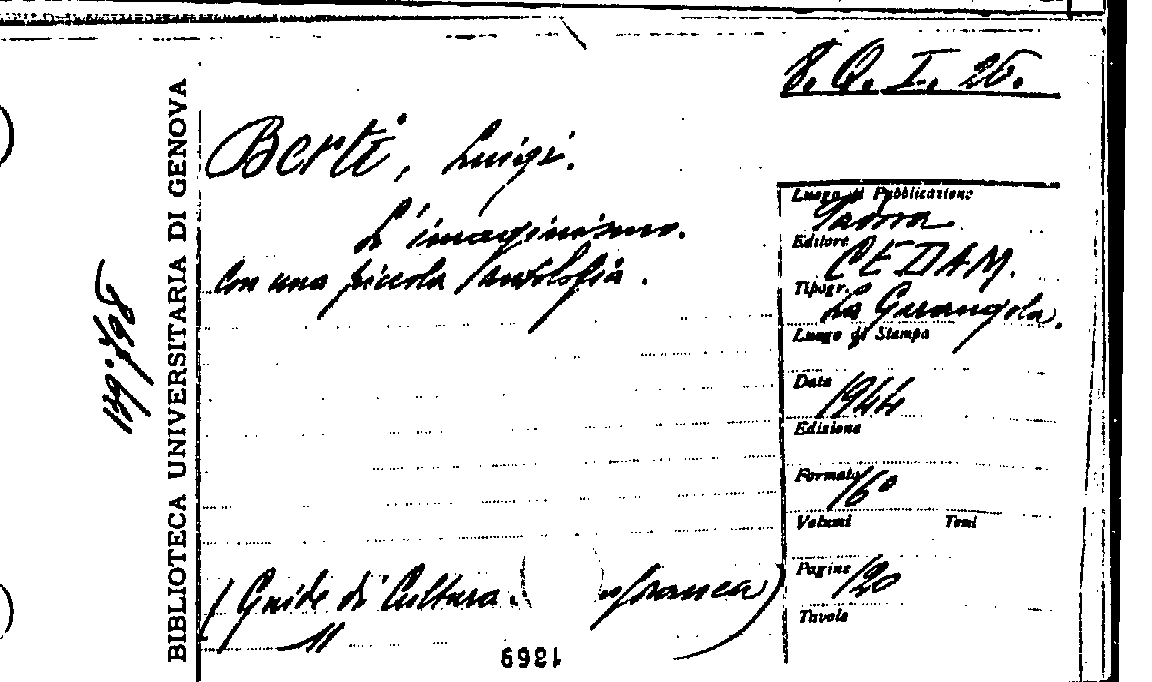 8. Q. I. 26.
BIBLIOTECA UNIVERSITARIA DI GENOVA
Berti, Luigi.
L'imaginismo.
Con una piccola antologia.
Luogo di Pubblicazione
Padova
Editore
CEDAM.
Tipogr.
La Garangola.
Luogo di Stampa
Data
1944
Edizione
Formato
16°
Volumi Tomi
Pagine
120
Tavole
(Guide di Cultura.
11
1369